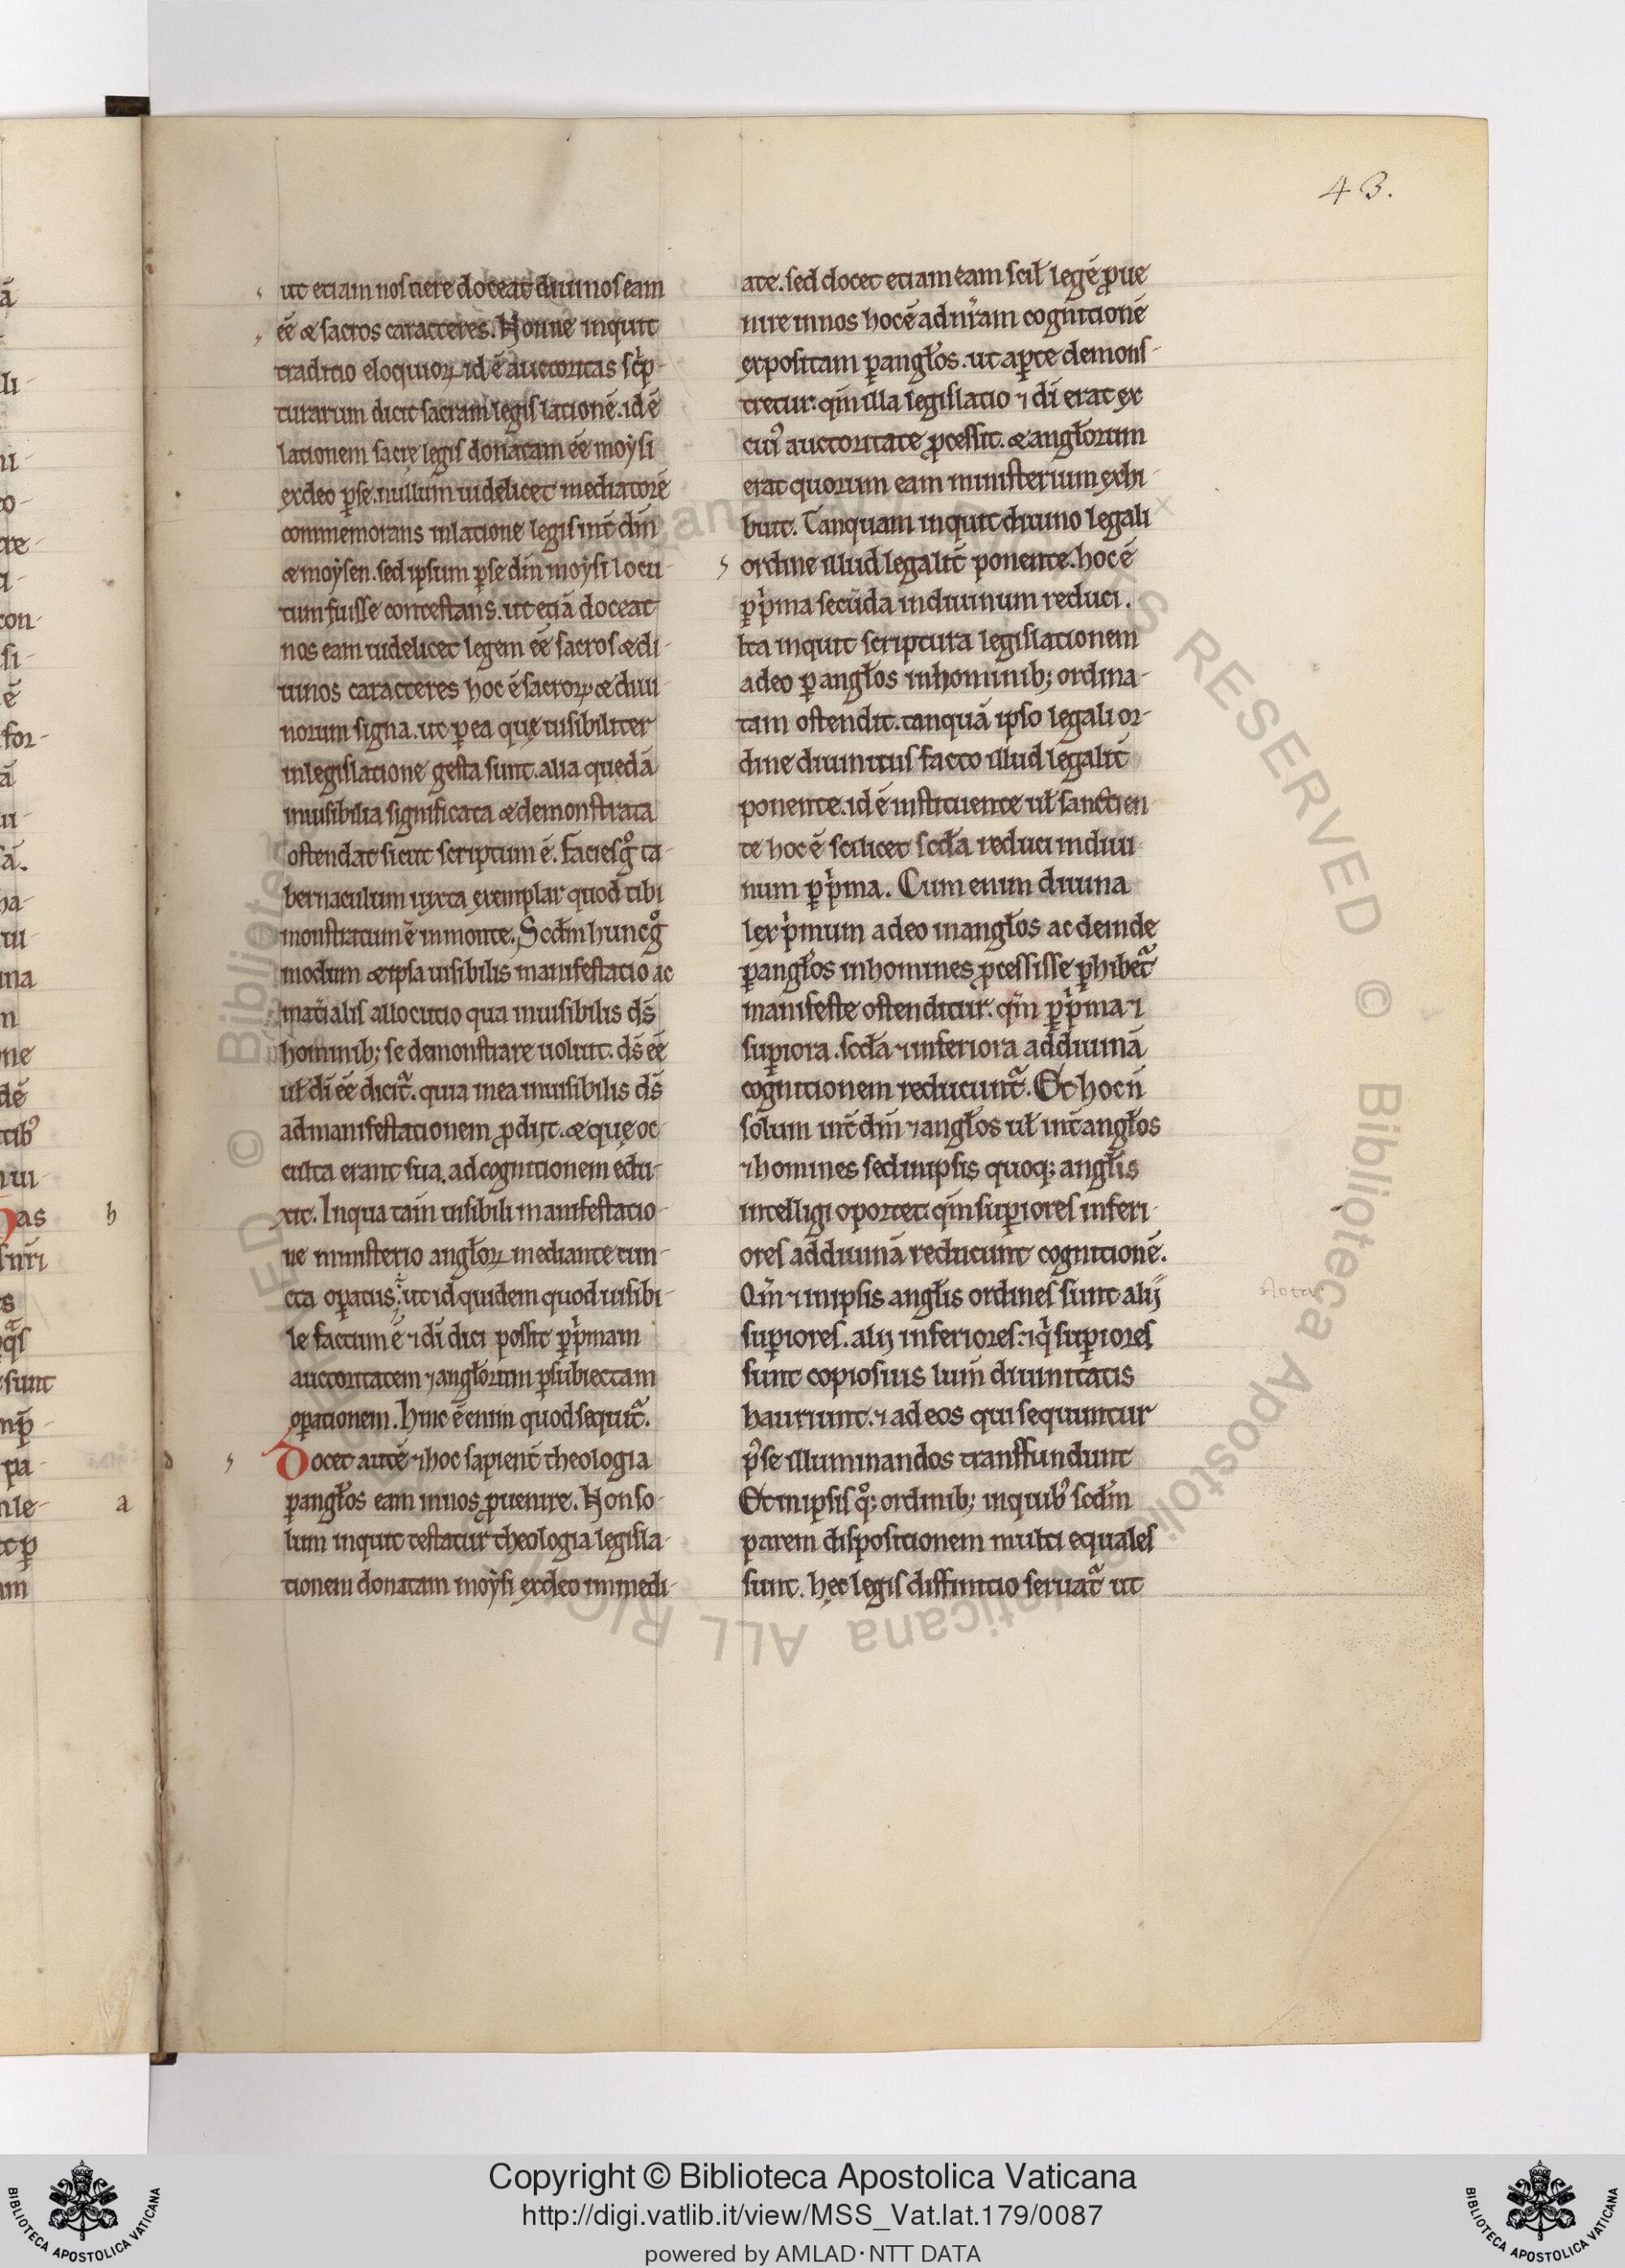 43.
ut etiam nos uere doceat diuinos eam
eē & sacros caracteres. Nonne inquit
traditio eloquioꝝ id ē auctoritas sc̓p-
turarum dicit sacram legis lationē. id ē
lationem sacrę legis donatam eē moẏsi
exdeo ꝑse. nullum uidelicet mediatorē
commemorans inlatione legis int̄ dm̄
& moẏsen. sed ipsum ꝑse dm̄ moẏsi locu-
tum fuisse contestans. ut etiā doceat
nos eam uidelicet legem eē sacros & di-
uinos caracteres hoc ē sacroꝝ & diui-
norum signa. ut ꝑ ea quę uisibiliter
inlegislatione gesta sunt. alia quedā
inuisibilia significata & demonstrata
ostendat sicut scriptum ē. Facies gͦ ta-
bernaculum iuxta exemplar quod tibi
monstratum ē in monte. Scdm̄ hunc gͦ
modum & ipsa uisibilis manifestatio ac
mat̓ialis allocutio qua inuisibilis ds̄
hominib; se demonstrare uoluit. ds̄ eē
uł di eē dicit᷑. quia in ea inuisibilis ds̄
admanifestationem ꝓdiit. & quę oc-
culta erant sua. ad cognitionem edu-
xit. In qua tam̄ uisibili manifestatio-
ne ministerio angłoꝝ mediante cun-
cta oꝑatus᷑. ut id quidem quod uisibi-
le factum ē ⁊ di dici possit ꝑ p̓mam
auctoritatem ⁊ angłorum ꝑ subiectam
oꝑationem. Hinc ē enim quod sequit᷑.
Docet autē ⁊ hoc sapient̄ theologia
ꝑ angłos eam in nos ꝓuenire. Non so-
lum inquit testatur theologia legisla-
tionem donatam moẏsi exdeo immedi-
ate. sed docet etiam eam scił legē ꝓue
nire in nos hoc ē ad nr̄am cognitionē
expositam ꝑ angłos. ut aꝑte demons-
tretur: qm̄ illa legislatio ⁊ di erat ex
cuiꝰ auctoritate ꝓcessit. & angłorum
erat quorum eam ministerium exhi-
buit. Tanquam inquit diuino legali
ordine illud legalit̄ ponente. hoc ē
ꝑ p̓ma secūda in diuinum reduci.
Ita inquit scriptura legislationem
adeo ꝑ angłos inhominib; ordina-
tam ostendit. tanquā ipso legali or-
dine diuinitus facto illud legalit̄
ponente. id ē instituente uł sanctien
te hoc ē scilicet scda reduci in diui
num ꝑ p̓ma. Cum enim diuina
lex p̓mum adeo in angłos ac deinde
ꝑ angłos in homines ꝓcessisse ꝑhibet᷑
manifeste ostenditur: qm̄ ꝑ p̓ma ⁊
suꝑiora. scda ⁊ inferiora ad diuinā
cognitionem reducunt᷑. Et hoc n̄
solum int̄ dm̄ ⁊ angłos uł int̄ angłos
⁊ homines sed in ipsis quoq; anglis
intelligi oportet: qm̄ suꝑiores inferi-
ores ad diuinā reducunt cognitionē.
Qm̄ ⁊ in ipsis anglis ordines sunt alij
suꝑiores. alij inferiores: ⁊ q̓ suꝑiores
sunt copiosius lum̄ diuinitatis
hauriunt. ⁊ ad eos qui sequuntur
p̓ se illuminandos transfundunt
Et in ipsis qͦ; ordinib; in quibꝰ scdm̄
parem dispositionem multi equales
sunt. hęc legis diffinitio seruat᷑ ut
d
h
a
Copyright © Biblioteca Apostolica Vaticana
http://digi.vatlib.it/view/MSS_Vat.lat.179/0087
powered by AMLAD·NTT DATA
BIBLIOTECA APOSTOLICA VATICANA
BIBLIOTECA APOSTOLICA VATICANA